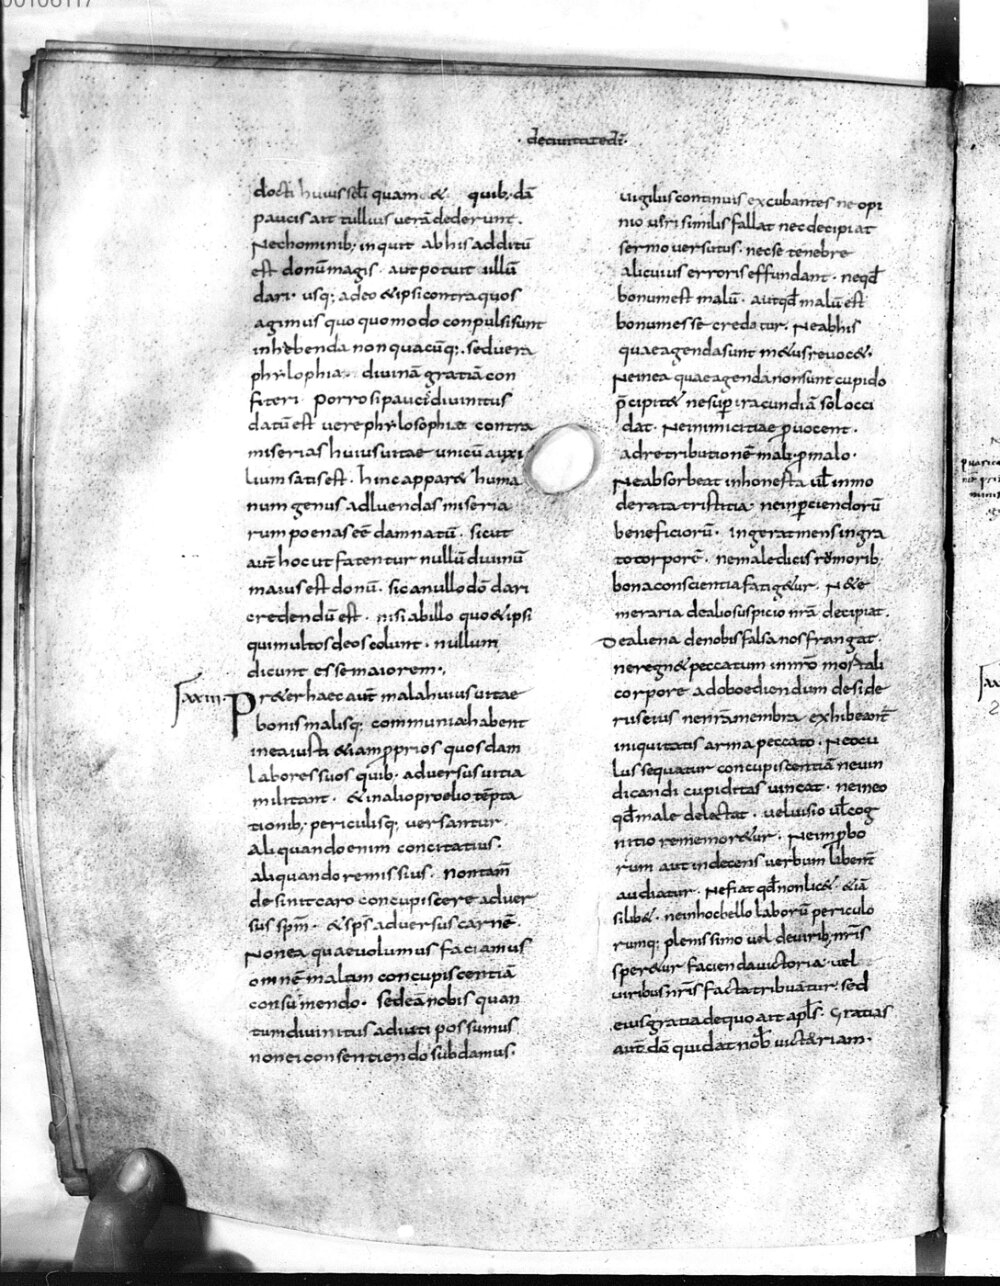 00106117
· deciuitatedi ·
docti huius sc̅li quam & quib; da̅
paucis ait tullius uera̅ dederunt.
Nec hominib; inquit ab his additu̅
est donu̅ magis · aut potuit ullu̅
dari · usq; adeo & ipsi contra quos
agimus quo quo modo conpulsi sunt
in hebenda non quacu̅q; · sed uera
phylophia · diuina̅ gratia̅ con
fiteri · porro si paucis diuinitus
datu̅ est uere phylosophiae contra
miserias huius uitae unicu̅ auxi
lium satis est · hinc apparet huma
num genus ad luendas miseria
rum poenas e̅e̅ damnatu̅ · sicut
aut̅ hoc ut fatentur nullu̅ diuinu̅
maius est donu̅ · sic a nullo do̅ dari
credendu̅ est · nisi ab illo quo & ipsi
qui multos deos colunt · nullum
dicunt esse maiorem ·
xxiii · Pr&er haec aut̅ mala huius uitae
bonis malisq; communia habent
in ea iusti & ia̅ proprios quosdam
labores suos quib; aduersus uitia
militant · & in alio proelio te̅pta
tionib; periculisq; uersantur ·
Aliquando enim concitatius ·
aliquando remissius · non tam̅
desinit caro concupiscere aduer
sus sp̅m · & sp̅s aduersus carne̅ ·
Non ea quae uolumus faciamus
omne̅ malam concupiscentia̅
consumendo · sed ea̅ nobis quan
tum diuinitus adiuti possumus
non ei consentiendo subdamus ·
uigiliis continuis excubantes ne opi
nio ueri similis fallat nec decipiat
sermo uersutus · nec se tenebre
alicuius erroris effundant · ne qd̅
bonum est malu̅ · aut qd̅ malu̅ est
bonum esse credatur · Ne ab his
quae agenda sunt metus reuocet ·
Ne in ea quae agenda non sunt cupido
p̅cipitet · ne sup̅ iracundia̅ sol occi
dat · Ne inimicitiae p̅uocent ·
ad retributione̅ mali p̅ malo ·
Ne absorbeat inhonesta ul̅ inmo
derata tristitia · ne inp̅ciendoru̅
beneficioru̅ · ingerat mens ingra
to corpore̅ · ne maledicis rumorib;
bona conscientia fatigetur · Ne te
meraria de alio suspicio nr̅a decipiat ·
De aliena de nobis falsa nos frangat ·
ne regn& peccatum in nr̅o mortali
corpore ad oboediendum deside
riis eius · ne nr̅a membra exhibeant̅
iniquitatis arma peccato · Ne ocu
lus sequatur concupiscentia̅ ne uin
dicandi cupiditas uincat · ne in eo
qd̅ male delectat · uel uisio ul̅ cog
nitio rememoretur · Ne inp̅bo
rum aut indecens uerbum libent̅
audiatur · Ne fiat qd̅ non lic& · & ia̅
si lib& · ne in hoc bello laboru̅ periculo
rumq; plenissimo uel de uirib; nr̅is
speretur facienda uictoria · uel
uiribus nr̅is facta tribuatur · sed
eius gratia de quo ait apl̅s · Gratias
aut̅ do̅ qui dat nob̅ uictoriam ·